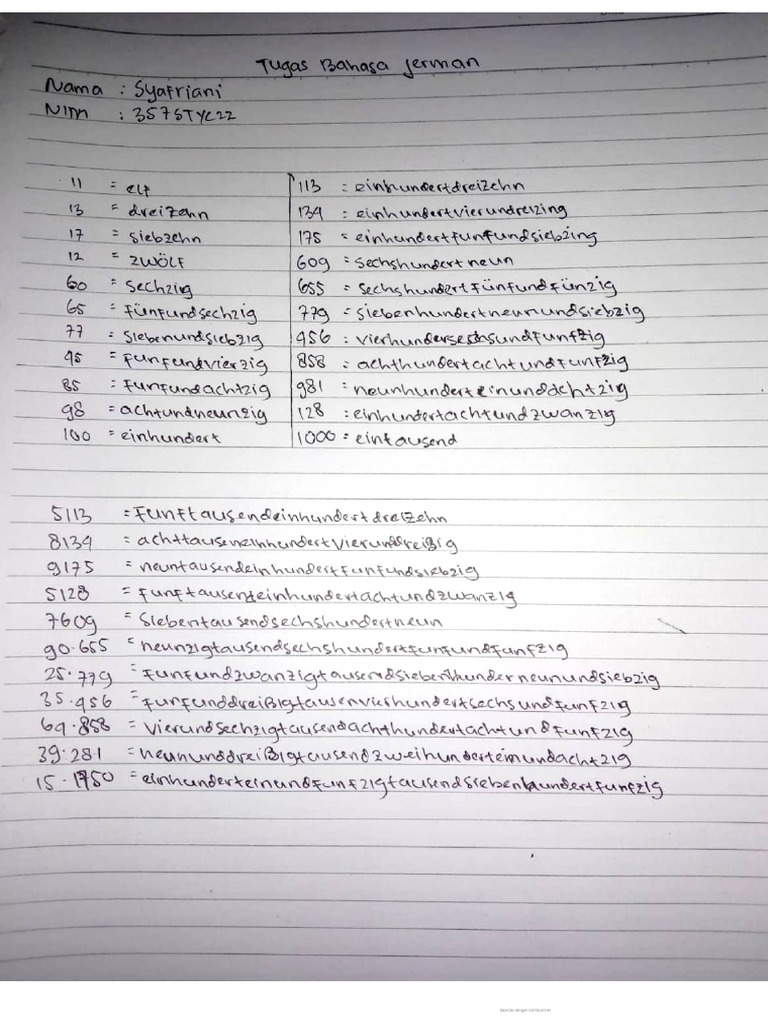 Tugas Bahasa Jerman
Nama : Syafriani
NIM : 357STYC22
11 = elf
13 = dreizehn
17 = siebzehn
12 = zwölf
60 = sechzig
65 = fünfundsechzig
77 = siebenundsiebzig
45 = funfundvierzig
85 = funfundachtzig
98 = achtundneunzig
100 = einhundert
113 = einhundertdreizehn
134 = einhundertvierundreizing
175 = einhundertfunfundsiebzing
609 = sechshundertneun
655 = sechshundertfünfundfünzig
779 = siebenhundertneunundsiebzig
956 = vierhundersestsundfunfzig
858 = achthundertachtundfunfzig
981 = neunhunderteinunddchtzig
128 = einhundertachtundzwanzig
1000 = eintausend
5113 = funftausendeinhundertdreizehn
8134 = achttauseneinhundertvierundreißig
9175 = neuntausendeinhundertfunfundsiebzig
5128 = funftausendeinhundertachtundzwanzig
7609 = siebentausendsechshundertneun
90.655 = neunzigtausendsechshundertfunfundfunfzig
25.779 = funfundzwanzigtausendsiebenhunderneunundsiebzig
35.456 = funfunddreißigtausenvierhundertsechsundfunfzig
64.858 = vierundsechzigtausendachthundertachtundfunfzig
39.281 = neununddreißigtausendzweihunderteinundachtzig
15.1750 = einhunderteinundfunfzigtausendsiebenhundertfunfzig